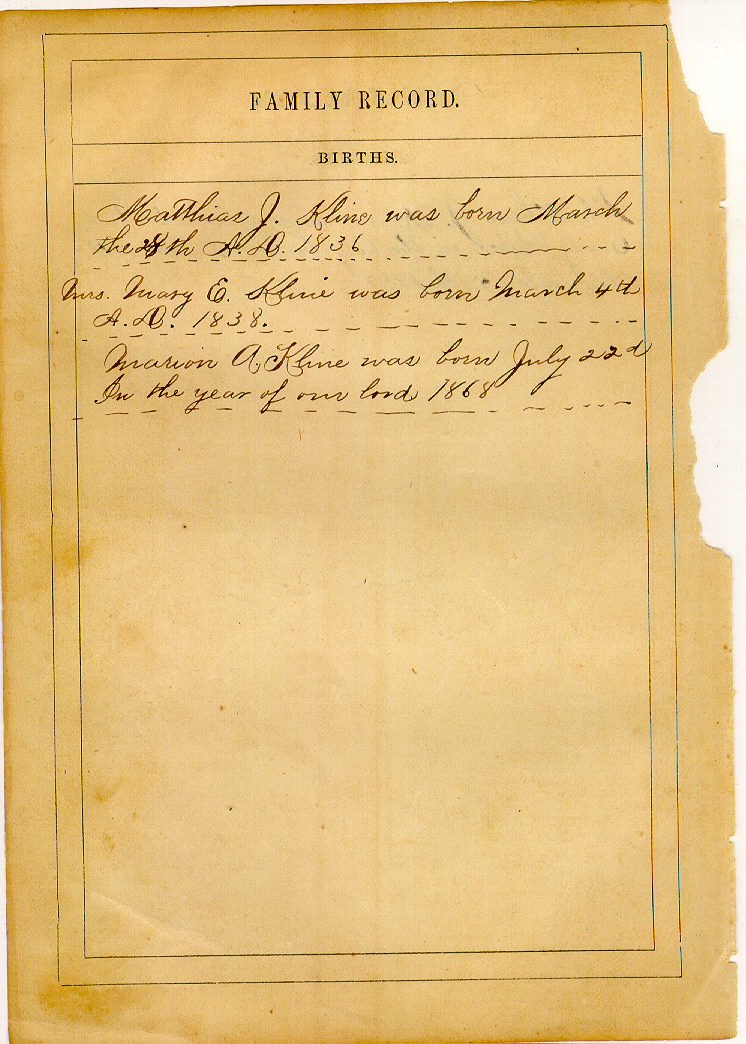 FAMILY RECORD.
BIRTHS.
Matthias J. Kline was born March
the 28th A.D. 1836
Mrs. Mary E. Kline was born March 4th
A.D. 1838.
Marion A. Kline was born July 22d
In the year of our lord 1868